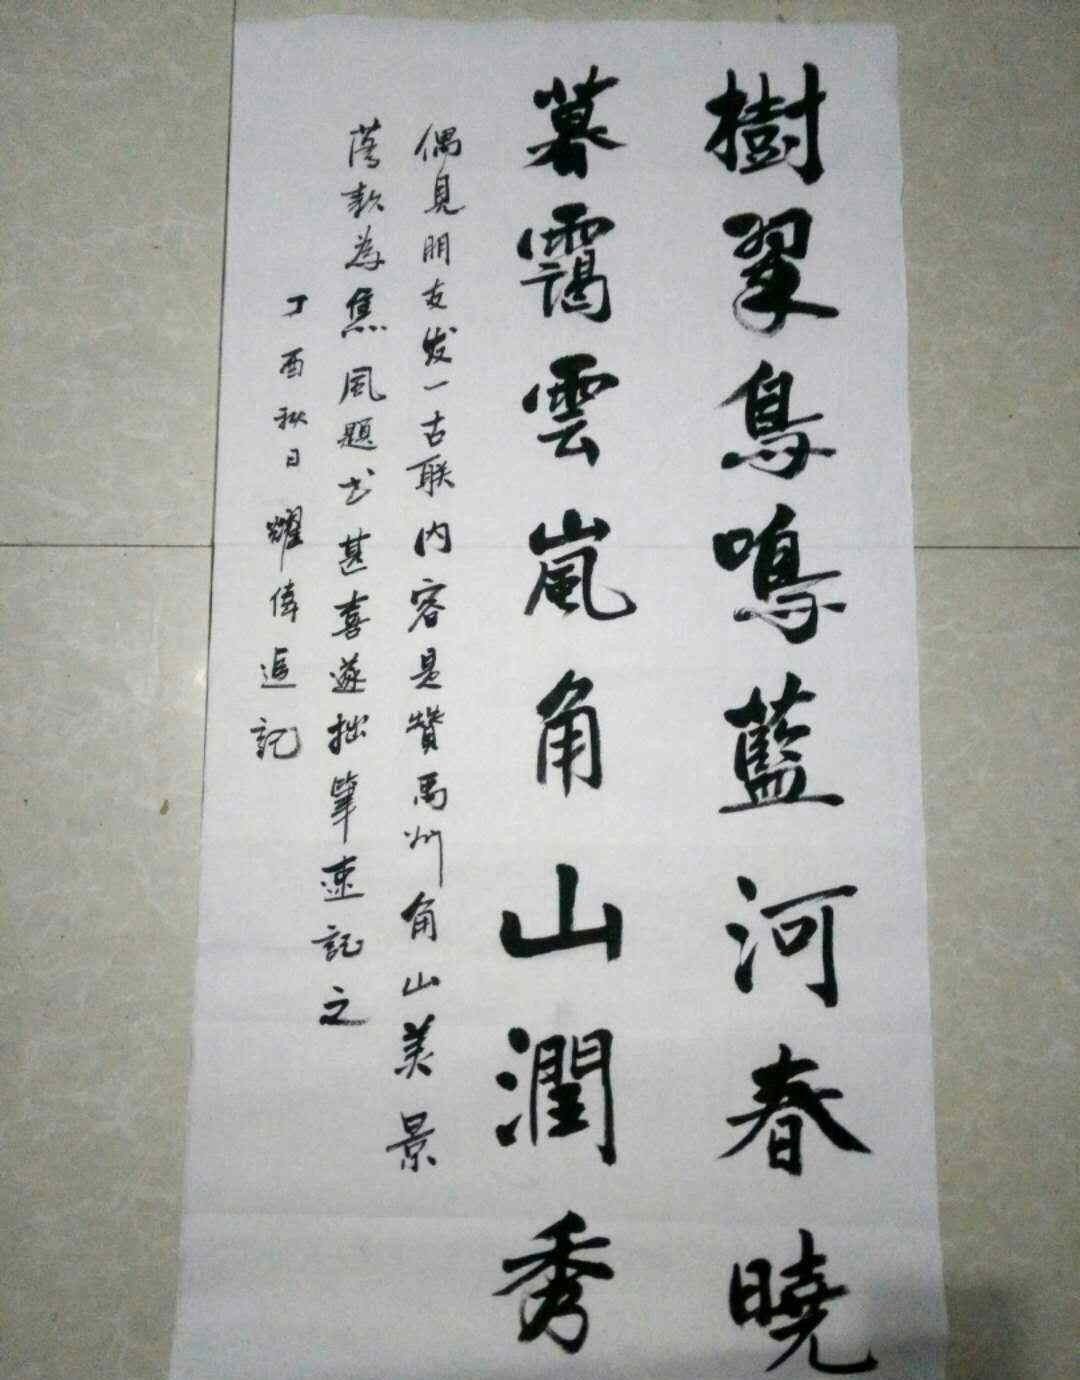 樹翠鳥鳴藍河春曉
暮靄雲嵐角山潤秀
偶見朋友发一古联内容是贊禹州角山美景
落款為焦風題书甚喜遂拙筆速記之
丁酉秋日耀偉追記